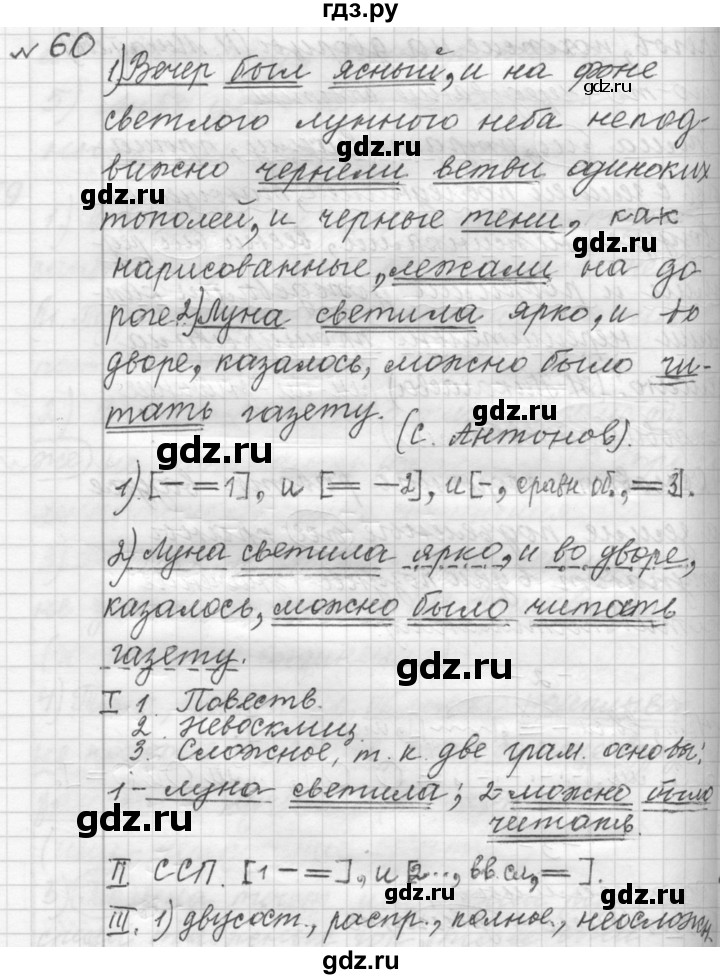 гдз.ру
№ 60
1) Вечер был ясный, и на фоне
светлого лунного неба непод-
вижно чернели ветви одиноких
тополей, и черные тени, как
нарисованные, лежали на до
роге. 2) Луна светила ярко, и во
дворе, казалось, можно было чи-
тать газету.
(С. Антонов).
1) [- = 1], и [= - 2], и [-, сравн. об., = 3].
2) Луна светила ярко, и во дворе,
казалось, можно было читать
газету.
I 1. Повеств.
2. Невосклиц.
3. Сложное, т. к. две грам. основы:
1 - луна светила; 2 - можно было
читать.
II ССП. [1 - =], и [2..., вв.сл, = ].
III. 1) двусост., распр., полное, неосложн.
gdz.ru
gdz.ru
gdz.ru
gdz.ru
gdz.ru
gdz.ru
gdz.ru
gdz.ru
gdz.ru
gdz.ru
gdz.ru
gdz.ru
gdz.ru